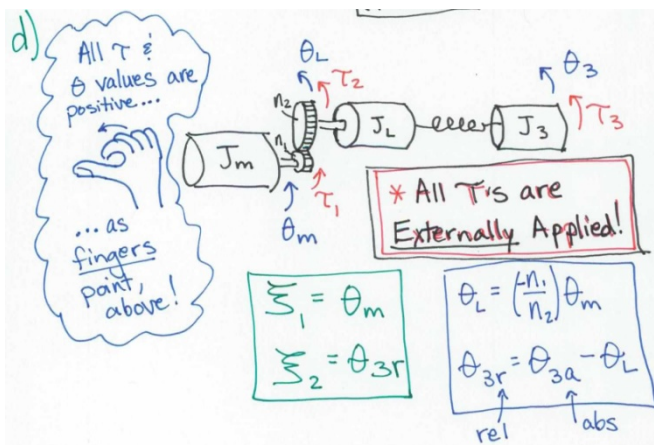 d)
All τ &
θ values are
positive...
... as
fingers
point,
above!
θL
τ2
n2
n1
Jm
JL
J3
θ3
τ3
τ1
θm
* All τ's are
Externally Applied!
ξ1 = θm
ξ2 = θ3r
θL = (-n1/n2) θm
θ3r = θ3a - θL
rel
abs